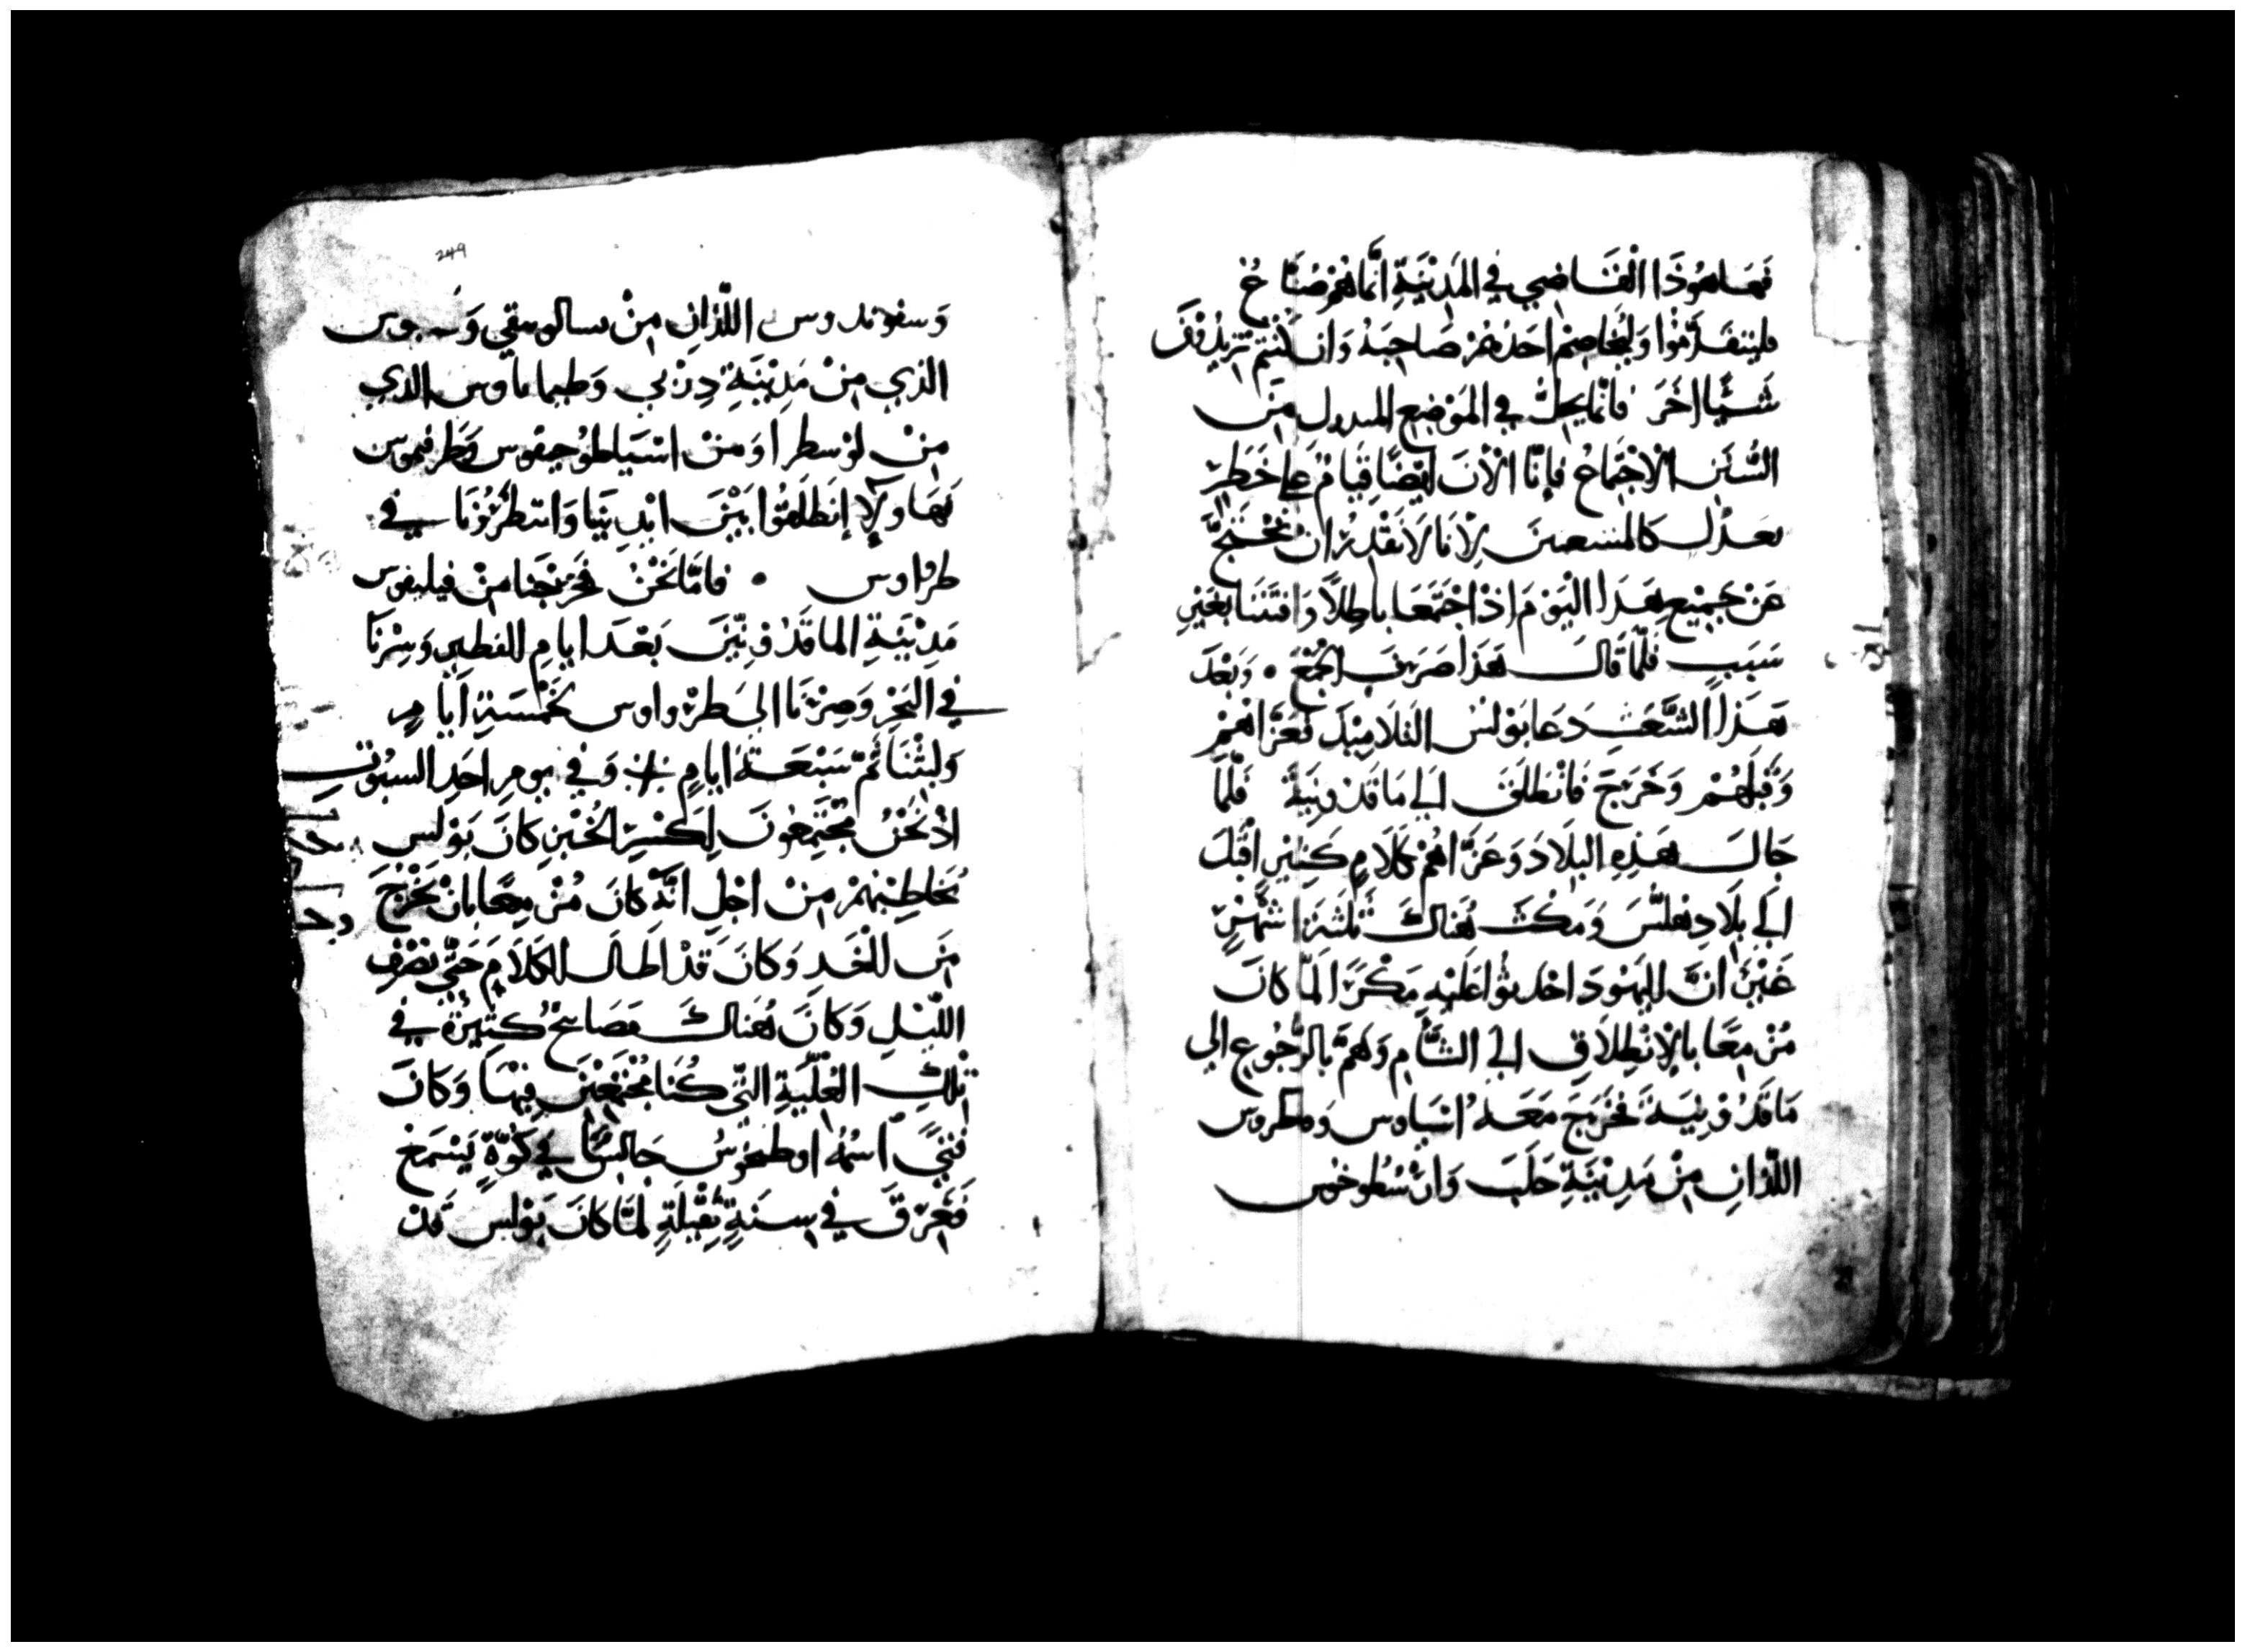 فَهَاهُوذَا الْقَاضِي فِي المَدِيْنَةِ انَّمَا هُمْ صُنَّاعُ
فليتقَدَّمُوا وَليُخَاصِمْ احَدُهُمْ صَاحِبَهُ وَان كُنْتُمْ تُرِيدُوْنَ
شَيْئًا اخَرَ فَانَّمَا يحِلُّ فِي المَوْضِعِ المبدول مِنَ
السُّنَنِ الاجْتِمَاعُ فَإِنَّا الْانَ ايْضًا قِيَامٌ عَلى خَطَرٍ
نعذل كالمشعبين لِانَّا لَا نَقْدِرُ انْ نَحْتَجَّ
عَنْ جَمِيْعِ هَذَا اليَوْمَ اذْ اجْتَمَعْنَا بَاطِلًا وَافتَتَنَّا بِغَيْرِ
سَبَبٍ فَلَمَّا قَالَ هَذَا صَرَفَ الجَمْعَ • وَبَعْدَ
هَذَا الشَّغَبِ دَعَا بَوْلسُ التلَامِيْذَ فَعَزَّاهُمْ
وَقَبَّلَهُمْ وَخَرَجَ فَانْطَلَقَ الَى مَاقَدُوْنِيَةَ فَلَمَّا
جَالَ هَذِهِ البِلَادَ وَعَزَّاهُمْ بِكَلَامٍ كَثِيْرٍ اقْبَلَ
الَى بِلَادِ هلَّسَ وَمَكثَ هُنَاكَ ثَلثَةَ اشْهُرٍ
غَيْرَ انَّ اليَهُوْدَ احْدَثُوا عَلَيْهِ مَكْرًا لَمَّا كَانَ
مُزْمِعًا بِالانْطِلَاقِ الَى الشَّامِ وَهَمَّ بِالرُّجُوْعِ الى
مَاقَدُوْنِيَةَ فَخَرَجَ مَعَهُ
اللَّذَانِ مِنْ مَدِيْنَةِ حَلَبَ وَارِسْطَرخُوس
249
وَسقوندوس اللَّذَانِ مِنْ تسالونيقي وَ
الذي مِنْ مَدِيْنَةِ دِرْبي وَطيماتاوس الذي
مِنْ لوْسطرا وَمِنْ اسْيَا طوُجيقوس وَطرفيموس
فَهَاولَاءِ انطَلقُوا بَيْنَ ايْدِيْنَا وَانتظَرُوْنَا فِي
طراوس • فَامَّا نَحْنُ فَخَرَجْنَا مِنْ فيليفوس
مَدِيْنَةِ الماقَدُوْنِيِّيْنَ بَعْدَ ايامِ الفَطِيْرِ وَسِرْنَا
فِي البَحْرِ وَصِرْنَا الى طرْواوس لخَمْسَةِ ايامٍ
وَلَبِثْنَا ثَمَّ سَبْعَةَ ايامٍ وَفِي يومِ احَدِ السبُوتِ
اذْ نَحْنُ مُجْتَمِعُونَ لِكَسْرِ الخُبْزِ كَانَ بَوْلس
يُخَاطِبُهُمْ مِنْ اجْلِ انَّهُ كَانَ مُزْمِعًا بِانْ يَخْرُجَ
مِنَ الْغَدِ وَكَانَ قدْ اطَالَ الكَلَامَ حَتَّى نصْفِ
اللَّيْلِ وَكَانَ هُنَاكَ مَصَابيحٌ كَثِيْرَةٌ فِي
تِلْكَ العُلِّيَّةِ التّي كُنَّا مُجْتَمِعِيْنَ فِيْهَا وَكَانَ
فَتىً اسْمُهُ اوطيخوسُ جَالِسًا فِي كَوَّةٍ يَسْمَعُ
فَغَرِقَ فِي سِنَةٍ ثَقِيْلَةٍ لمَّا كَانَ بَوْلس قَدْ